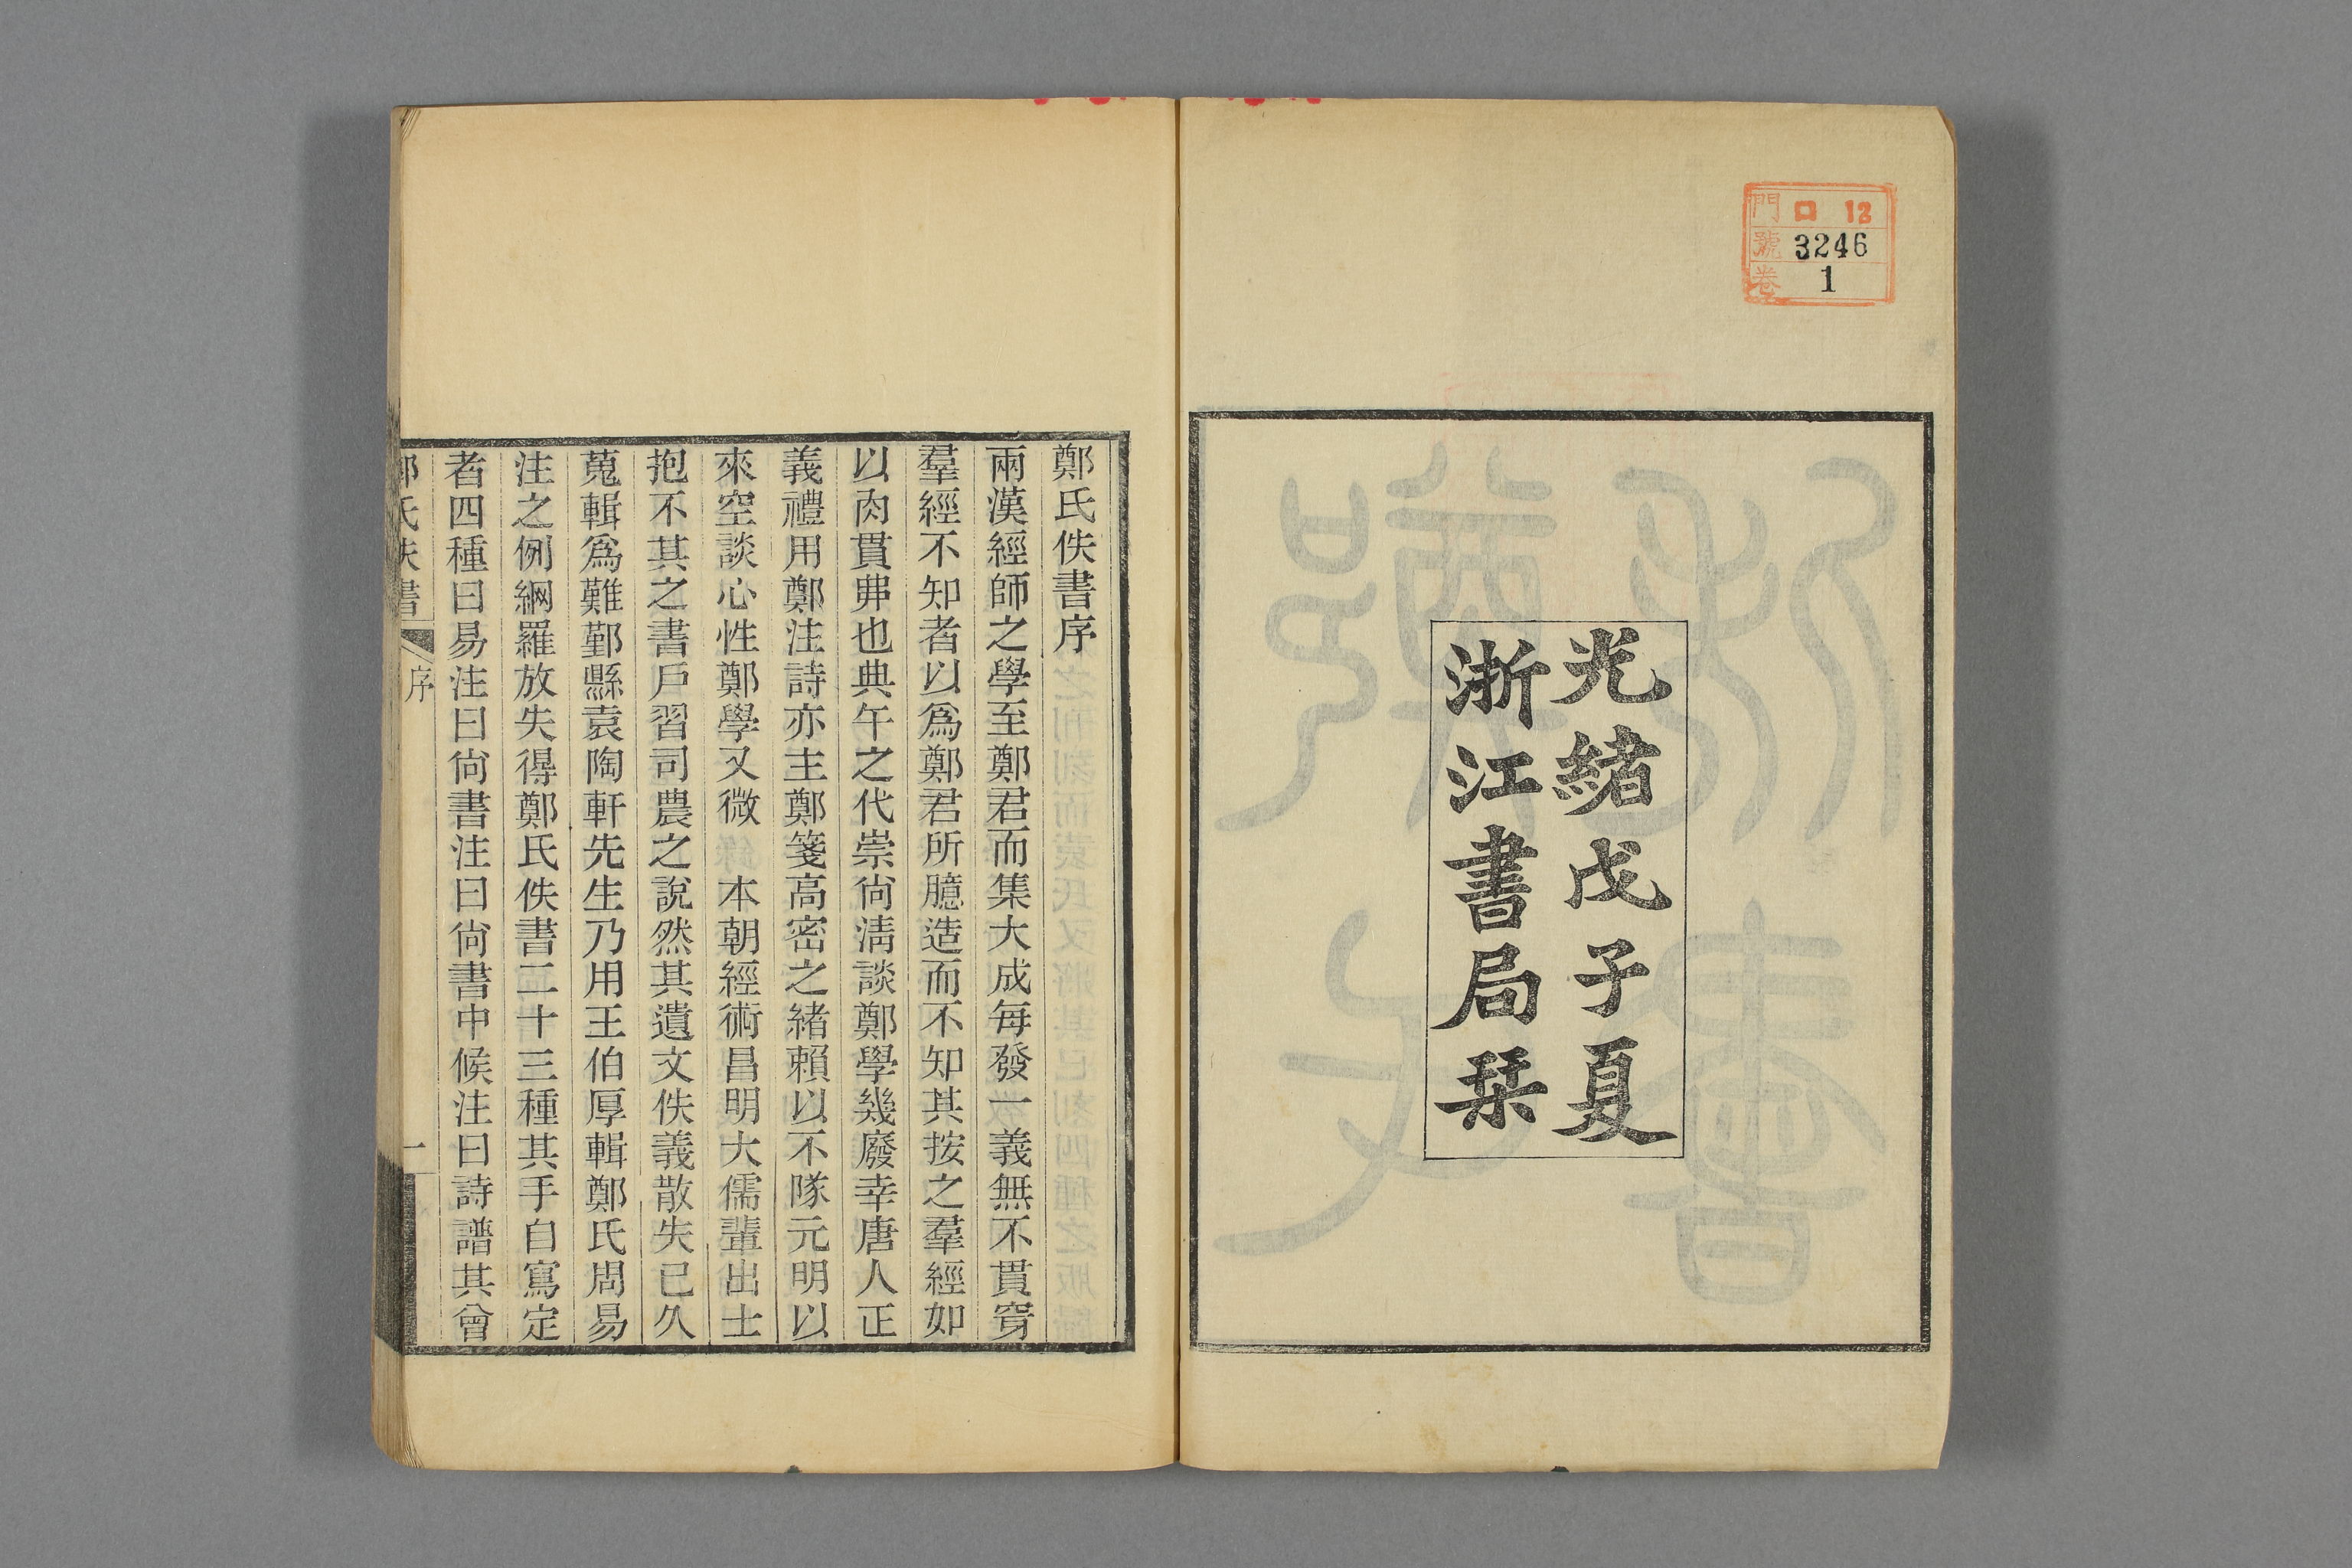 門 口 12
號 3246
卷 1
光緒戊子夏
浙江書局栞
鄭氏佚書序
兩漢經師之學至鄭君而集大成每發一義無不貫穿
羣經不知者以爲鄭君所臆造而不知其按之羣經如
以肉貫丳也典午之代崇尙淸談鄭學幾廢幸唐人正
義禮用鄭注詩亦主鄭箋高密之緒賴以不隊元明以
來空談心性鄭學又微 本朝經術昌明大儒輩出士
抱不其之書戶習司農之說然其遺文佚義散失已久
蒐輯爲難鄞縣袁陶軒先生乃用王伯厚輯鄭氏周易
注之例網羅放失得鄭氏佚書二十三種其手自寫定
者四種曰易注曰尙書注曰尙書中候注曰詩譜其曾
鄭氏佚書 序 一